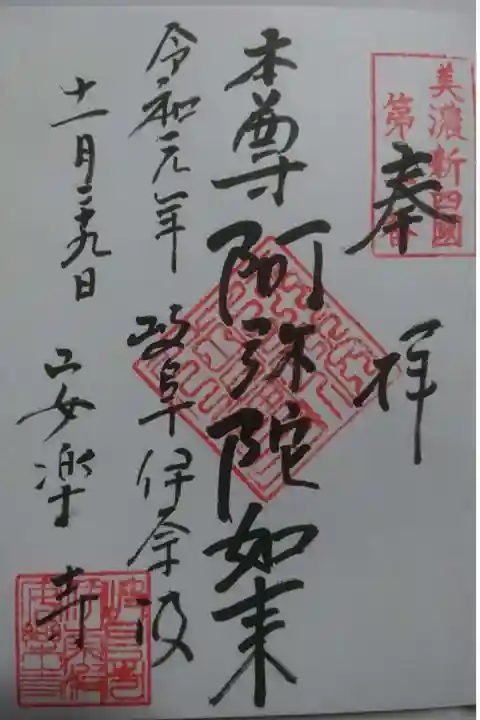 奉拝
美濃新四國
第
本尊 阿弥陀如来
令和元年
岐阜伊奈波
十一月二十九日
安楽寺